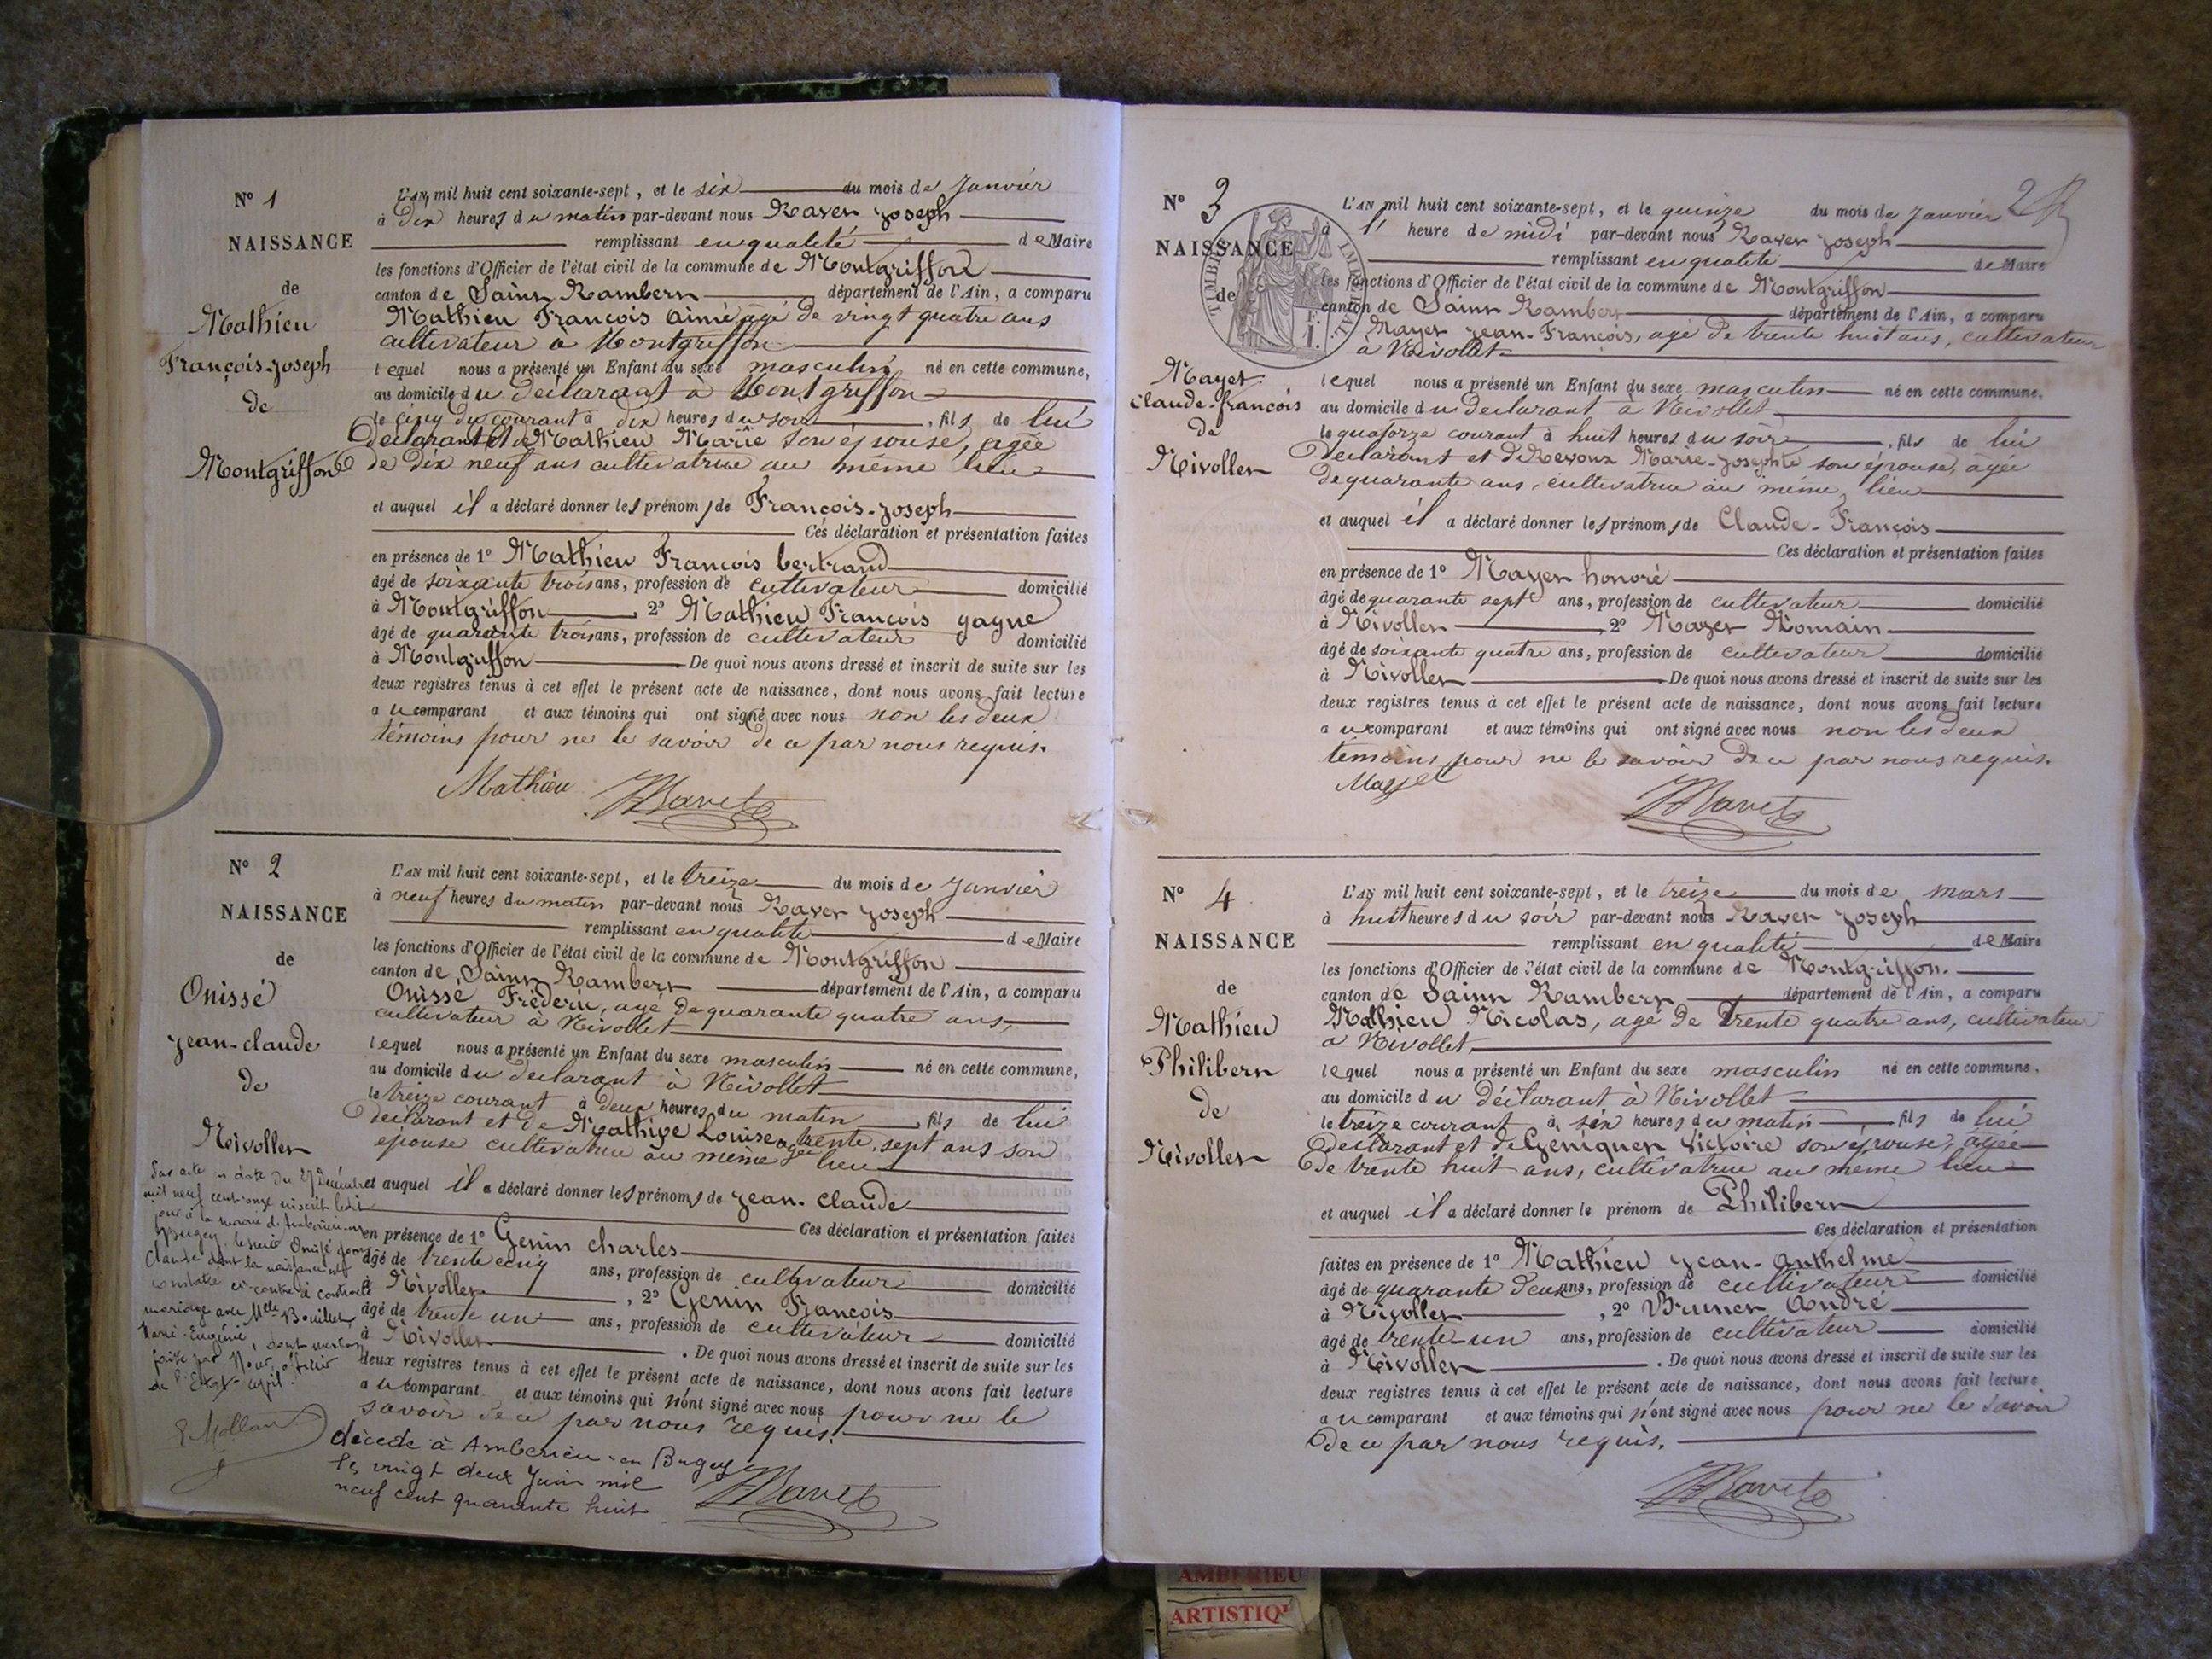 N° 1
NAISSANCE
de
Mathieu
François-Joseph
de
Montgriffon
L'AN mil huit cent soixante-sept, et le six du mois de Janvier
à dix heures du matin par-devant nous Ravet Joseph
remplissant en qualité de Maire
les fonctions d'Officier de l'état civil de la commune de Montgriffon
canton de Saint Rambert département de l'Ain, a comparu
Mathieu François Aimé agé de vingt quatre ans
cultivateur a Montgriffon
lequel nous a présenté un Enfant du sexe masculin né en cette commune,
au domicile du déclarant à Montgriffon
le cinq du courant à dix heures du soir, fils de lui
déclarant et de Mathieu Marie son épouse, agée
de dix neuf ans cultivatrice au même lieu
et auquel il a déclaré donner les prénoms de François-Joseph
Ces déclaration et présentation faites
en présence de 1° Mathieu François bertrand
âgé de soixante trois ans, profession de cultivateur domicilié
à Montgriffon, 2° Mathieu François gagne
âgé de quarante trois ans, profession de cultivateur domicilié
à Montgriffon De quoi nous avons dressé et inscrit de suite sur les
deux registres tenus à cet effet le présent acte de naissance, dont nous avons fait lecture
au comparant et aux témoins qui ont signé avec nous non les deux
témoins pour ne le savoir de ce par nous requis.
Mathieu JRavet
N° 2
NAISSANCE
de
Onissé
Jean-claude
de
Nivollet
L'AN mil huit cent soixante-sept, et le treize du mois de Janvier
à neuf heures du matin par-devant nous Ravet Joseph
remplissant en qualité de Maire
les fonctions d'Officier de l'état civil de la commune de Montgriffon
canton de Saint Rambert département de l'Ain, a comparu
Onissé Fréderic, agé de quarante quatre ans,
cultivateur à Nivollet
lequel nous a présenté un Enfant du sexe masculin né en cette commune,
au domicile du déclarant à Nivollet
le treize courant à deux heures du matin, fils de lui
déclarant et de Mathive Louise agée trente sept ans son
épouse cultivatrice au même lieu
et auquel il a déclaré donner les prénoms de Jean-claude
Ces déclaration et présentation faites
en présence de 1° Genin charles
âgé de trente cinq ans, profession de cultivateur domicilié
à Nivollet, 2° Genin François
âgé de trente un ans, profession de cultivateur domicilié
à Nivollet. De quoi nous avons dressé et inscrit de suite sur les
deux registres tenus à cet effet le présent acte de naissance, dont nous avons fait lecture
au comparant et aux témoins qui n'ont signé avec nous pour ne le
savoir de ce par nous requis.
JRavet
Par acte en date du 27 Décembre
mil neuf cent onze inscrit ledit
jour à la mairie d'Ambérieu-en
Bugey, le sieur Onissé Jean
Claude dont la naissance est
constatée ci-contre a contracté
mariage avec Mlle Bouillet
Eugénie, dont mention
faite par Nous, officier
de l'Etat civil.
E. Mollan
décédé à Ambérieu-en Bugey
le vingt deux Juin mil
neuf cent quarante huit
N° 3
NAISSANCE
de
TIMBRE IMPERIAL
Mayet
Claude-François
de
Nivollet
2
L'AN mil huit cent soixante-sept, et le quinze du mois de Janvier
à 1 heure de midi par-devant nous Ravet Joseph
remplissant en qualité de Maire
les fonctions d'Officier de l'état civil de la commune de Montgriffon
canton de Saint Rambert département de l'Ain, a comparu
Mayet Jean-François, agé de trente huit ans, cultivateur
à Nivollet
lequel nous a présenté un Enfant du sexe masculin né en cette commune,
au domicile du déclarant à Nivollet
le quatorze courant à huit heures du soir, fils de lui
déclarant et de Revoux Marie-Josephte son épouse, agée
de quarante ans, cultivatrice au même lieu
et auquel il a déclaré donner les prénoms de Claude-François
Ces déclaration et présentation faites
en présence de 1° Mayet honoré
âgé de quarante sept ans, profession de cultivateur domicilié
à Nivollet, 2° Mayet Romain
âgé de soixante quatre ans, profession de cultivateur domicilié
à Nivollet De quoi nous avons dressé et inscrit de suite sur les
deux registres tenus à cet effet le présent acte de naissance, dont nous avons fait lecture
au comparant et aux témoins qui ont signé avec nous non les deux
témoins pour ne le savoir de ce par nous requis.
Mayet JRavet
N° 4
NAISSANCE
de
Mathieu
Philibert
de
Nivollet
L'AN mil huit cent soixante-sept, et le treize du mois de mars
à huit heures du soir par-devant nous Ravet Joseph
remplissant en qualité de Maire
les fonctions d'Officier de l'état civil de la commune de Montgriffon.
canton de Saint Rambert département de l'Ain, a comparu
Mathieu Nicolas, agé de trente quatre ans, cultivateur
a Nivollet,
lequel nous a présenté un Enfant du sexe masculin né en cette commune,
au domicile du déclarant à Nivollet
le treize courant à six heures du matin fils de lui
déclarant et de Géniquet Victoire son épouse, agée
de trente huit ans, cultivatrice au même lieu
et auquel il a déclaré donner le prénom de Philibert
Ces déclaration et présentation
faites en présence de 1° Mathieu Jean-Anthelme
âgé de quarante deux ans, profession de cultivateur domicilié
à Nivollet, 2° Brunet André
âgé de trente-un ans, profession de cultivateur domicilié
à Nivollet. De quoi nous avons dressé et inscrit de suite sur les
deux registres tenus à cet effet le présent acte de naissance, dont nous avons fait lecture
au comparant et aux témoins qui n'ont signé avec nous pour ne le savoir
de ce par nous requis.
JRavet
AMBERIEU
ARTISTIQ